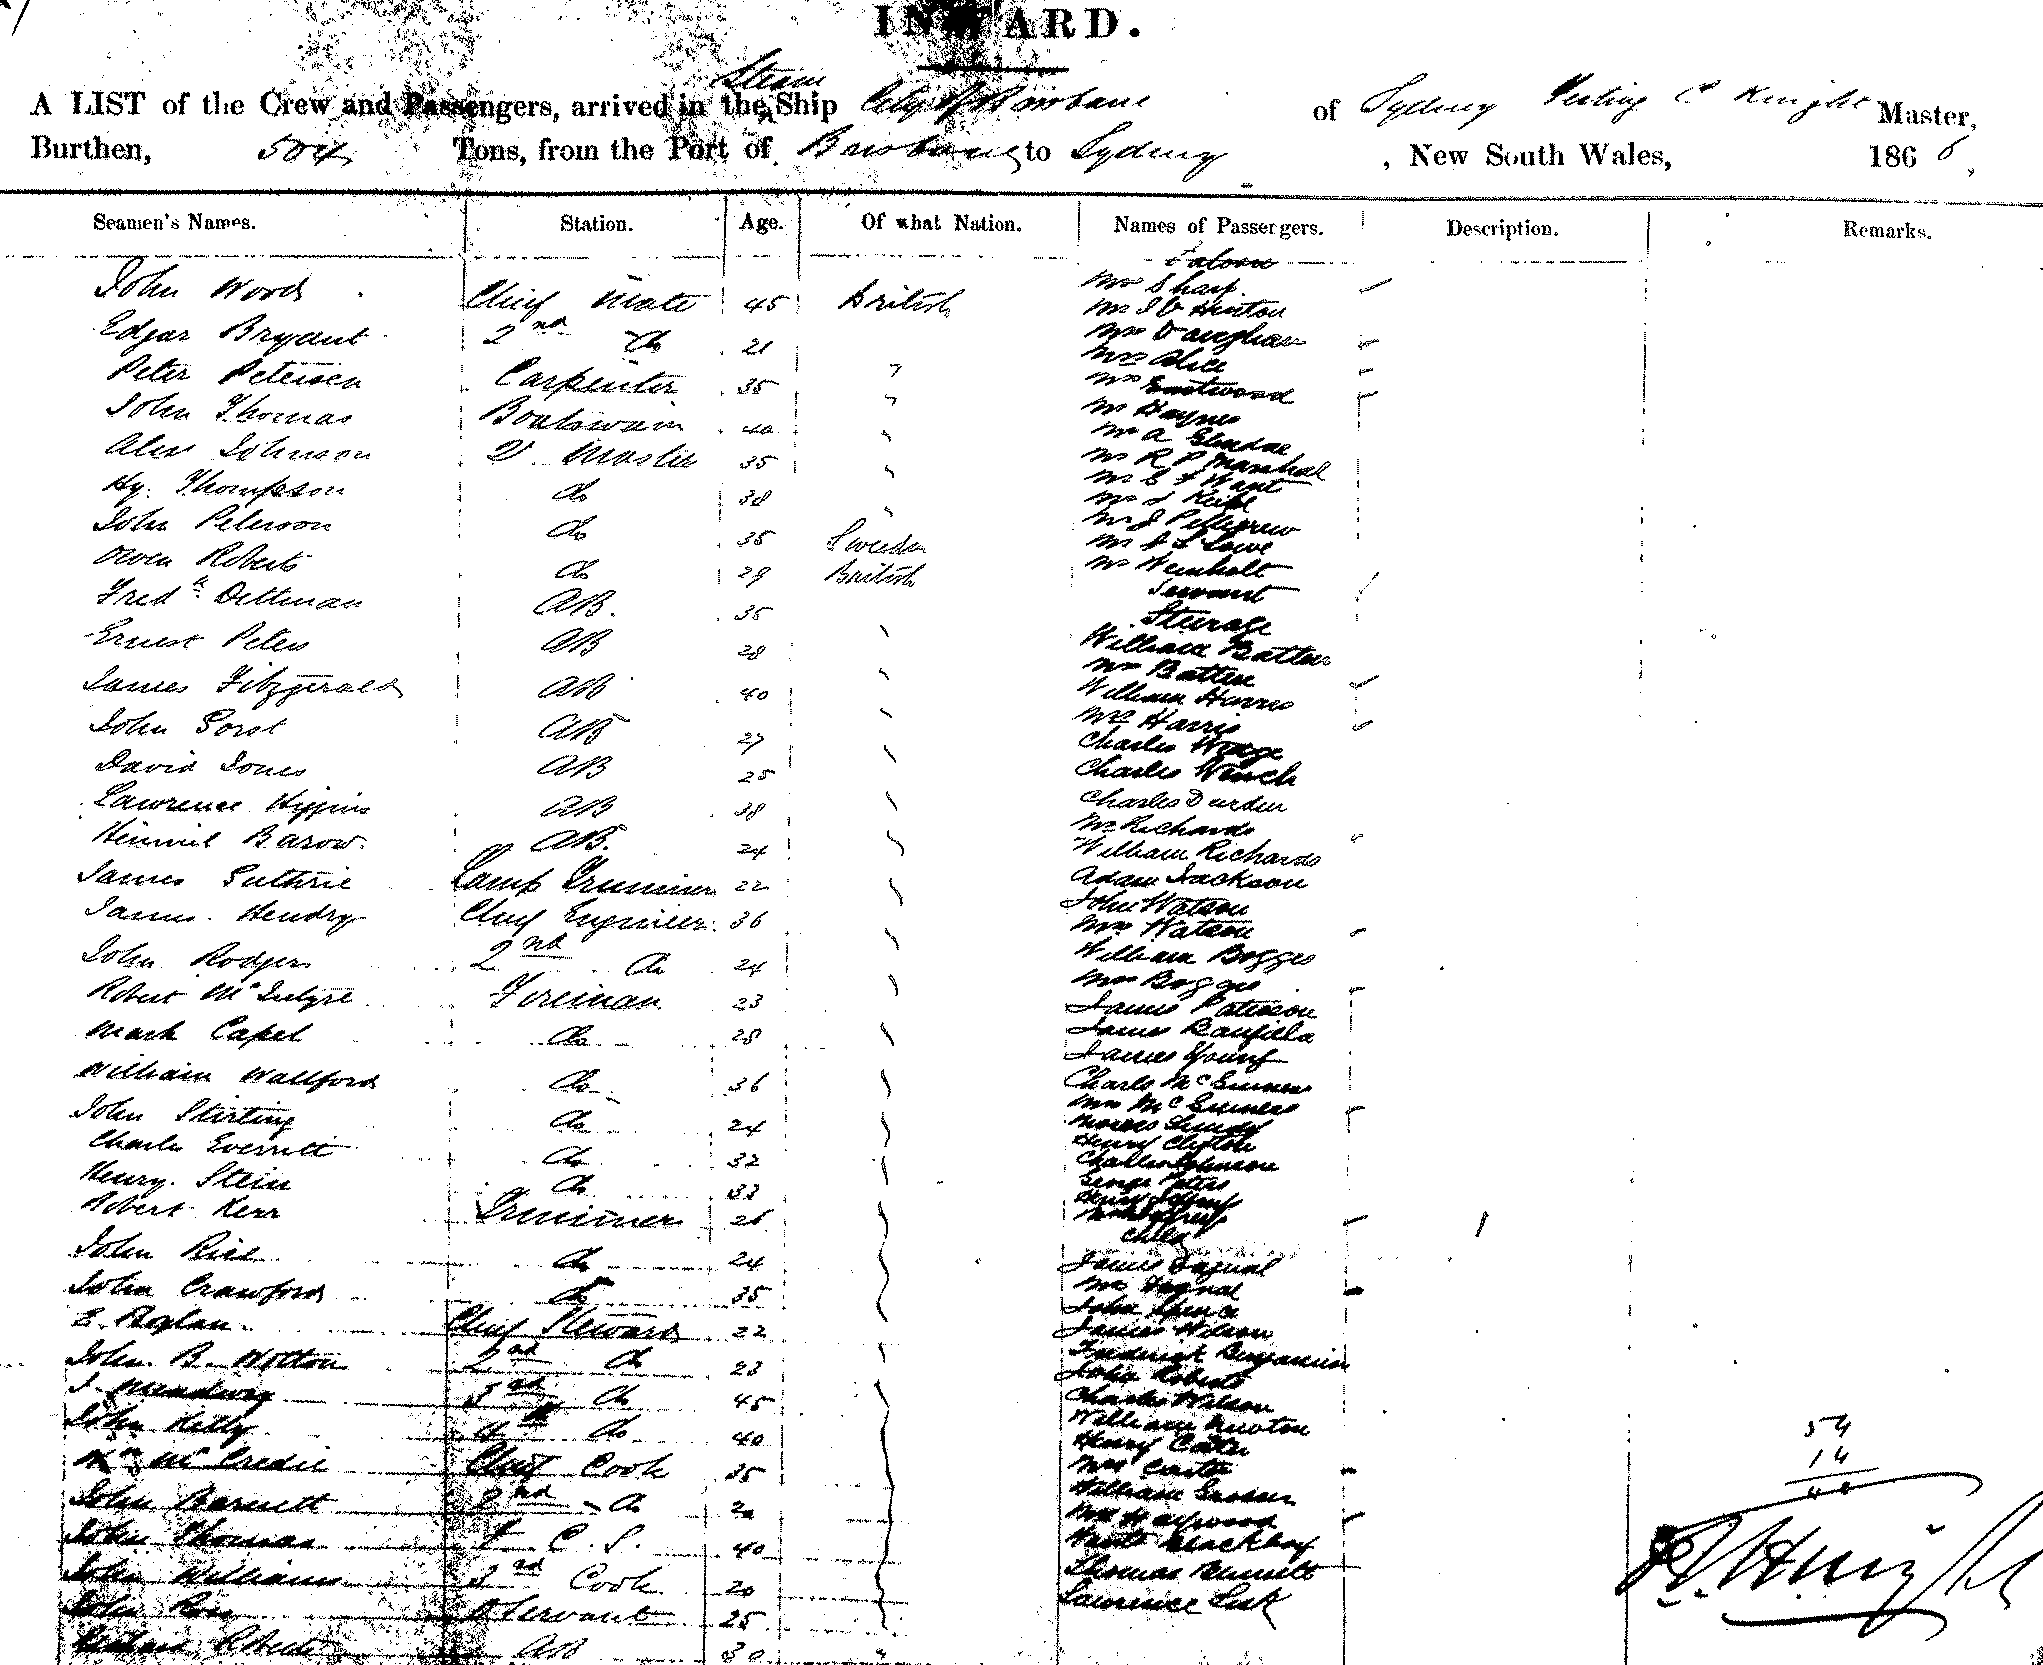 INWARD.
Steam
A LIST of the Crew and Passengers, arrived in the Ship City of Brisbane of Sydney C Knight Master,
Burthen, 504 Tons, from the Port of Brisbane to Sydney, New South Wales, 1866,
Seamen's Names. Station. Age. Of what Nation. Names of Passengers. Description. Remarks.
John Woods Chief Mate 45 British
Edgar Bryant 2nd Do 21
Peter Petersen Carpenter 35 "
John Thomas Boatswain 40 "
Alex Johnson Q. Master 35
Hy. Thompson do 38
John Peterson do 35 Sweden
Owen Roberts do 29 British
Fredk Dettman AB. 35
Ernest Peters AB 28
James Fitzgerald AB 40
John AB 27
David Jones AB 25
Lawrence Higgins AB 38
Barow. AB. 24
James Guthrie Lamp Trimmer 22
James Hendry Chief Engineer 36
John Rodgers 2nd do 24
Robert McIntyre Fireman 23
Mark Capel do 28
William Wallford do 36
John Stirling do 24
Charles Everritt do 32
Henry Stein do 33
Robert Kerr Trimmer 26
John Rice do 24
John Crawford do 35
E. Boylan Chief Steward 22
John B. Wotton 2nd do 23
J. 3rd do 45
John Kelly 4th do 40
Wm McCredie Chief Cook 35
John Barnett 2nd do 20
John Thomas C. S. 40
John Williams 3rd Cook 20
John Ross Servant 25
Roberts AB 30 "
Saloon
Mr Sharp
Mr Hinton
Mrs Vaughan
Mrs Alice
Mrs Eastwood
Mr Haynes
Mr A
Mr R P Marshal
Mr E F Want
Mr J
Mr J Pettigrew
Mr Lowe
Mr Wienholt
Servant
Steerage
William Batten
Mrs Batten
William Harris
Mrs Harris
Charles
Charles Winch
Charles Durden
Mrs Richards
William Richards
Adam Jackson
John Watson
Mrs Watson
William Bogges
Mrs Bogges
James Paterson
James Banfield
James Young
Charles McGuiness
Mrs McGuiness
Moses
Henry Clifton
Charles Johnson
George Peters
Henry
Child
James Tagnal
Mrs Tagnal
John Spence
James Wilson
Frederick Benjamin
John Roberts
Charles Wilson
William Newton
Henry Carter
Mrs Carter
William
Mrs Haywood
Thomas Bennett
Lawrence
54
14
40
Knight